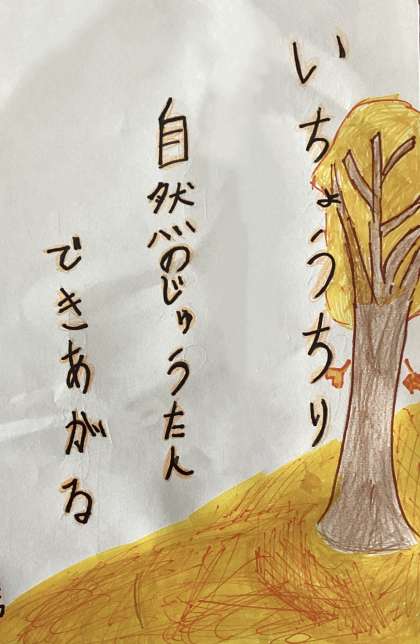 いちょうちり
自然のじゅうたん
できあがる